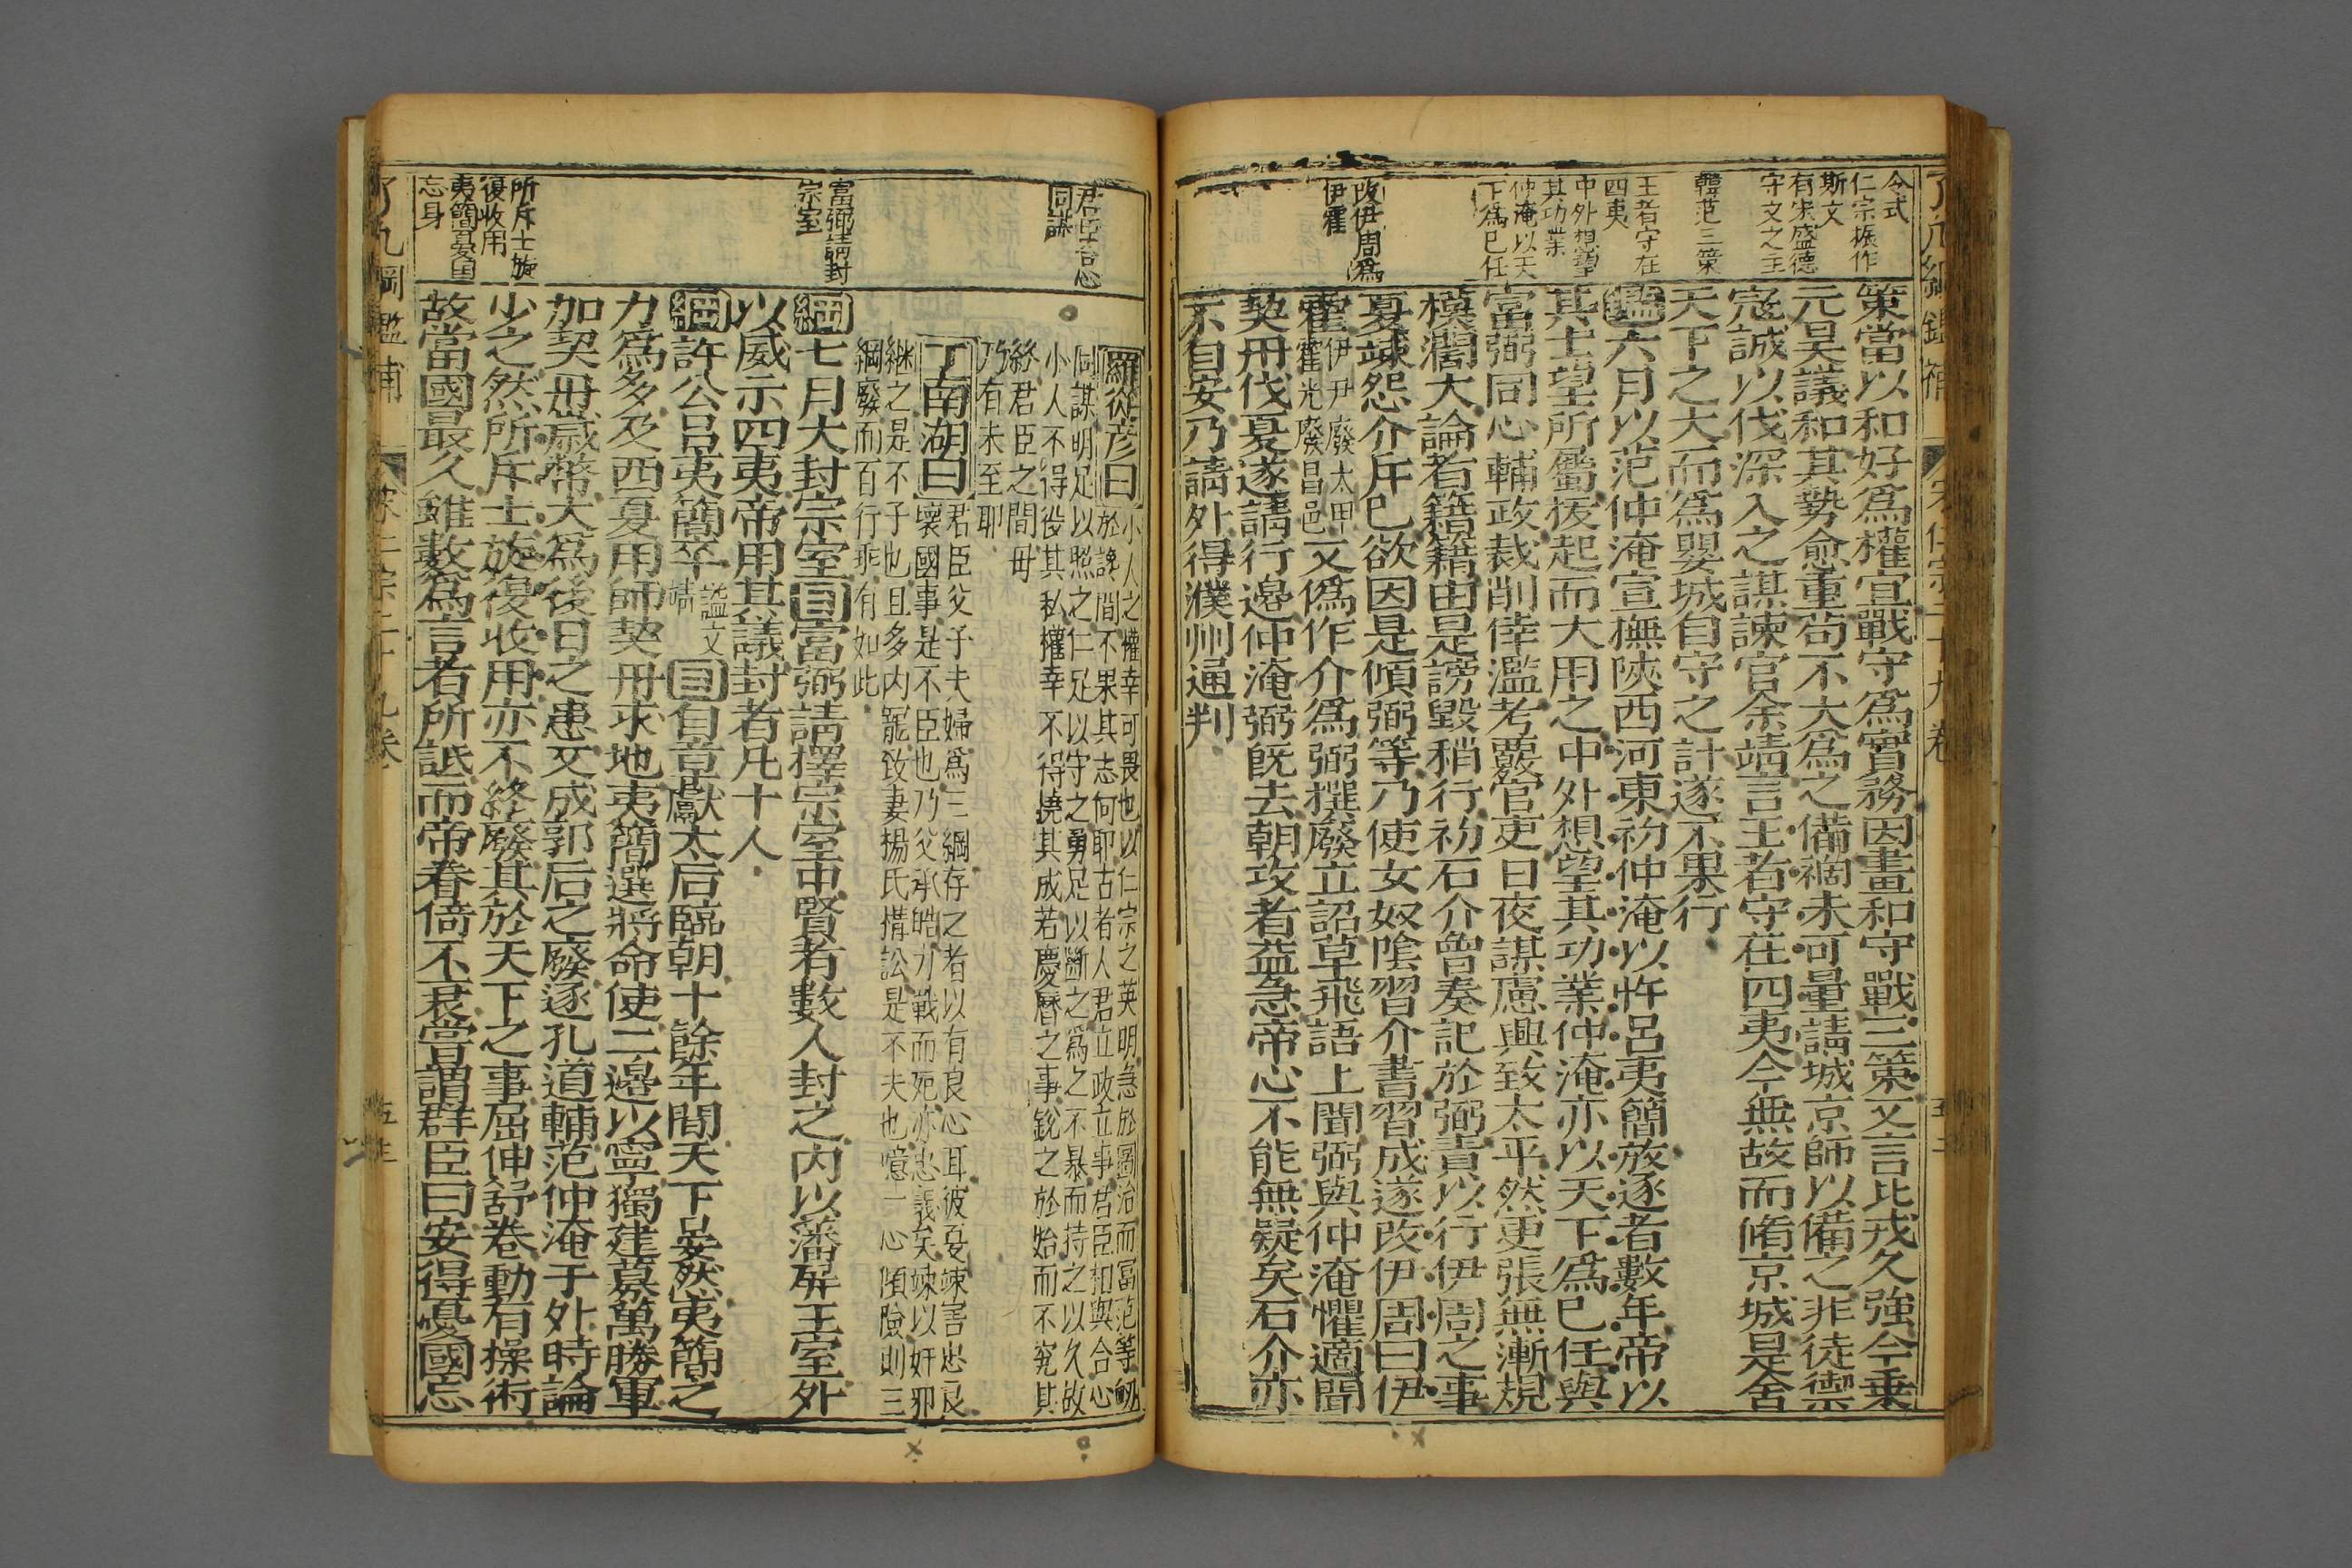 令式
仁宗振作
斯文
有宋盛德
守文之主
韓范三策
王者守在
四夷
中外想望
其功業
仲淹以天
下為已任
改伊周為
伊霍
策當以和好為權宜戰守為實務因畫和守戰三策又言比戎久強今乗
元昊議和其勢愈重苟不大為之備禍未可量請城京師以備之非徒禦
寇誠以伐深入之謀諫官余靖言王者守在四夷今無故而脩京城是舍
天下之大而為嬰城自守之計遂不果行
鑑六月以范仲淹宣撫陝西河東初仲淹以忤呂夷簡放逐者數年帝以
其士望所屬拔起而大用之中外想望其功業仲淹亦以天下為已任與
富弼同心輔政裁削倖濫考覈官吏日夜謀慮興致太平然更張無漸規
模濶大論者籍籍由是謗毀稍行初石介曾奏記於弼責以行伊周之事
夏竦怨介斥已欲因是傾弼等乃使女奴陰習介書習成遂改伊周曰伊
霍伊尹廢太甲霍光廢昌邑又偽作介為弼撰廢立詔草飛語上聞弼與仲淹懼適聞
契丹伐夏遂請行邉仲淹弼既去朝攻者益急帝心不能無疑矣石介亦
不自安乃請外得濮州通判
了凡綱鑑補 宋仁宗二十九卷
君臣合心
同謀
富弼請封
宗室
所斥士旋
復收用
夷簡憂国
忘身
羅從彦曰小人之權幸可畏也以仁宗之英明急於圖治而富范等
於讒間不果其志何耶古者人君立政立事君臣相與合心
同謀明足以照之仁足以守之勇足以斷之為之不暴而持之以久故
小人不得役其私權幸不得撓其成若慶曆之事銳之於始而不究其
終君臣之間毋
乃有未至耶
丁南湖曰君臣父子夫婦為三綱存之者以有良心耳彼夏竦害忠良
壞國事是不臣也乃父承皓力戰而死亦忠義矣竦以奸邪
継之是不子也且多内寵致妻楊氏搆訟是不夫也噫一心傾險則三
綱廢而百行乖有如此
綱七月大封宗室目富弼請擇宗室中賢者數人封之内以藩屏王室外
以威示四夷帝用其議封者凡十人
綱許公呂夷簡卒諡文靖目自章獻太后臨朝十餘年間天下晏然夷簡之
力為多及西夏用師契丹求地夷簡選將命使二邉以寧獨建募萬勝軍
加契丹歲幣大為後日之患又成郭后之廢逐孔道輔范仲淹于外時論
少之然所斥士旋復收用亦不終廢其於天下之事屈伸舒卷動有操術
故當國最久雖數為言者所詆而帝眷倚不衰嘗謂群臣曰安得憂國忘
了凡綱鑑補 宋仁宗二十九卷